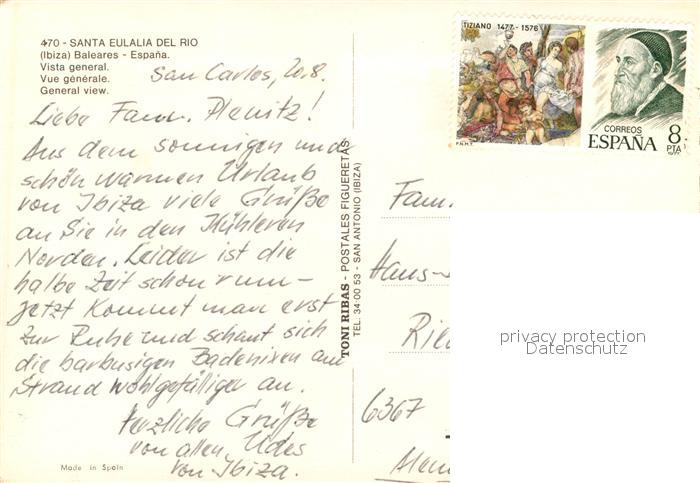 470 - SANTA EULALIA DEL RIO
(Ibiza) Baleares - España.
Vista general.
Vue générale.
General view.
San Carlos, 20.8.
Liebe Fam. Plenitz!
Aus dem sonnigen und
schön warmen Urlaub
von Ibiza viele Grüße
an Sie in den kühleren
Norden. Leider ist die
halbe Zeit schon rum-
jetzt kommt man erst
zur Ruhe und schaut sich
die barbusigen Badenixen am
Strand wohlgefälliger an.
Herzliche Grüße
von allen Udes
von Ibiza.
Made in Spain
TONI RIBAS - POSTALES FIGUERETAS
TEL. 34 00 53 - SAN ANTONIO (IBIZA)
TIZIANO 1477 - 1576
F.N.M.T.
CORREOS
ESPAÑA
8
PTA
1977
Fam.
Hans-
6367
privacy protection
Datenschutz